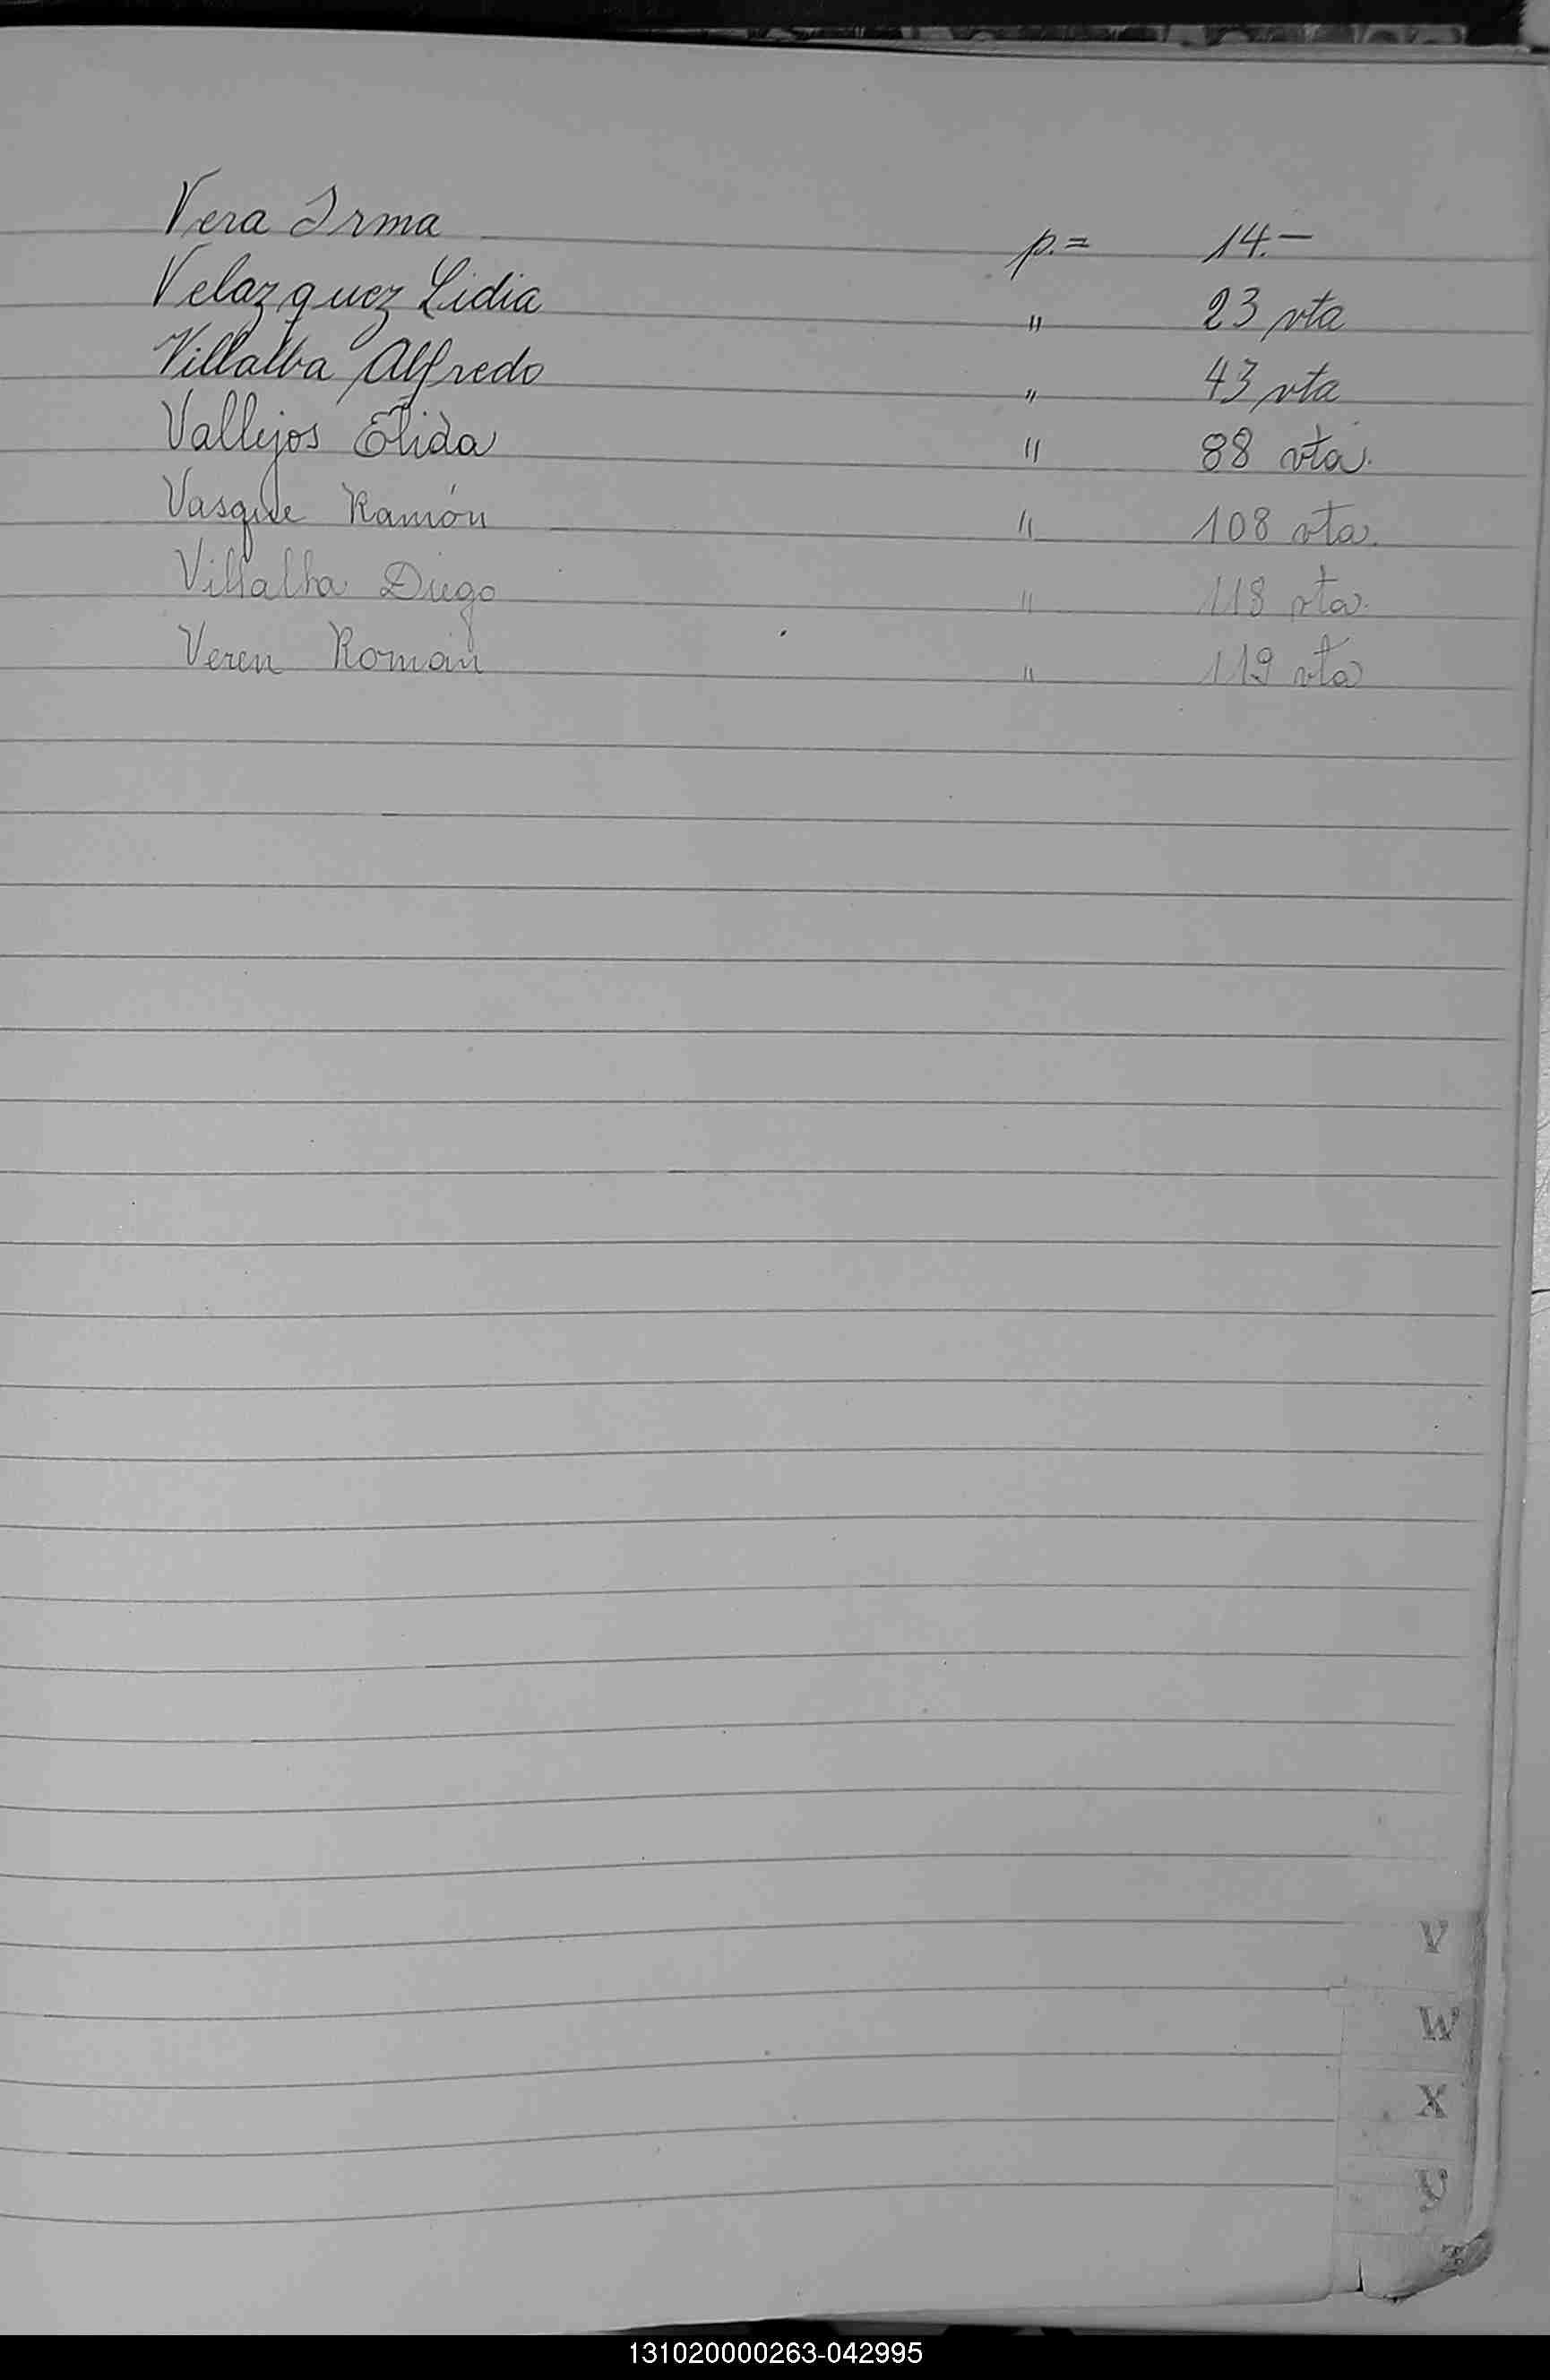 Vera Irma p.= 14.-
Velazquez Lidia " 23 vta
Villalba Alfredo " 43 vta
Vallejos Elida " 88 vta.
Vasque Ramón " 108 vta.
Villalba Diego " 118 vta.
Veren Román " 119 vta
V
W
X
Y
Z
131020000263-042995